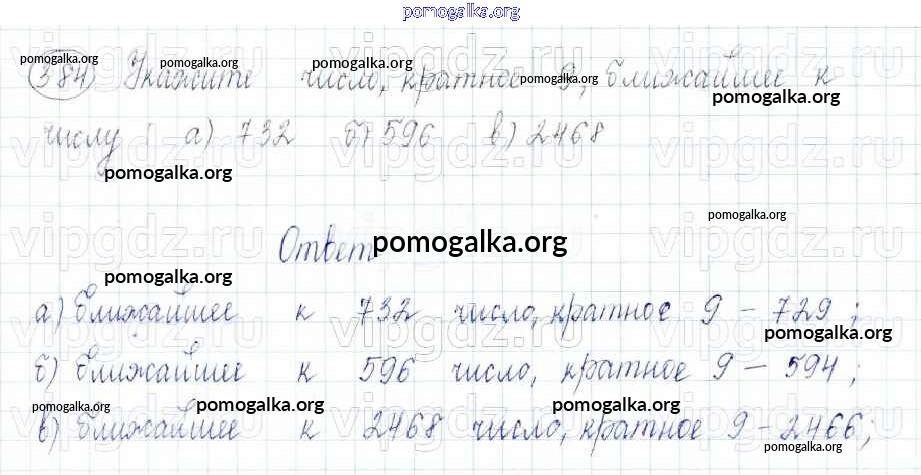 pomogalka.org
pomogalka.org pomogalka.org pomogalka.org
384 Укажите число, кратное 9, ближайшее к
pomogalka.org pomogalka.org
числу а) 732 б) 596 в) 2468
pomogalka.org
vipgdz.ru vipgdz.ru vipgdz.ru
pomogalka.org
Ответ pomogalka.org
pomogalka.org
а) ближайшее к 732 число, кратное 9 - 729;
pomogalka.org
б) ближайшее к 596 число, кратное 9 - 594;
pomogalka.org pomogalka.org pomogalka.org
в) ближайшее к 2468 число, кратное 9 - 2466;
pomogalka.org